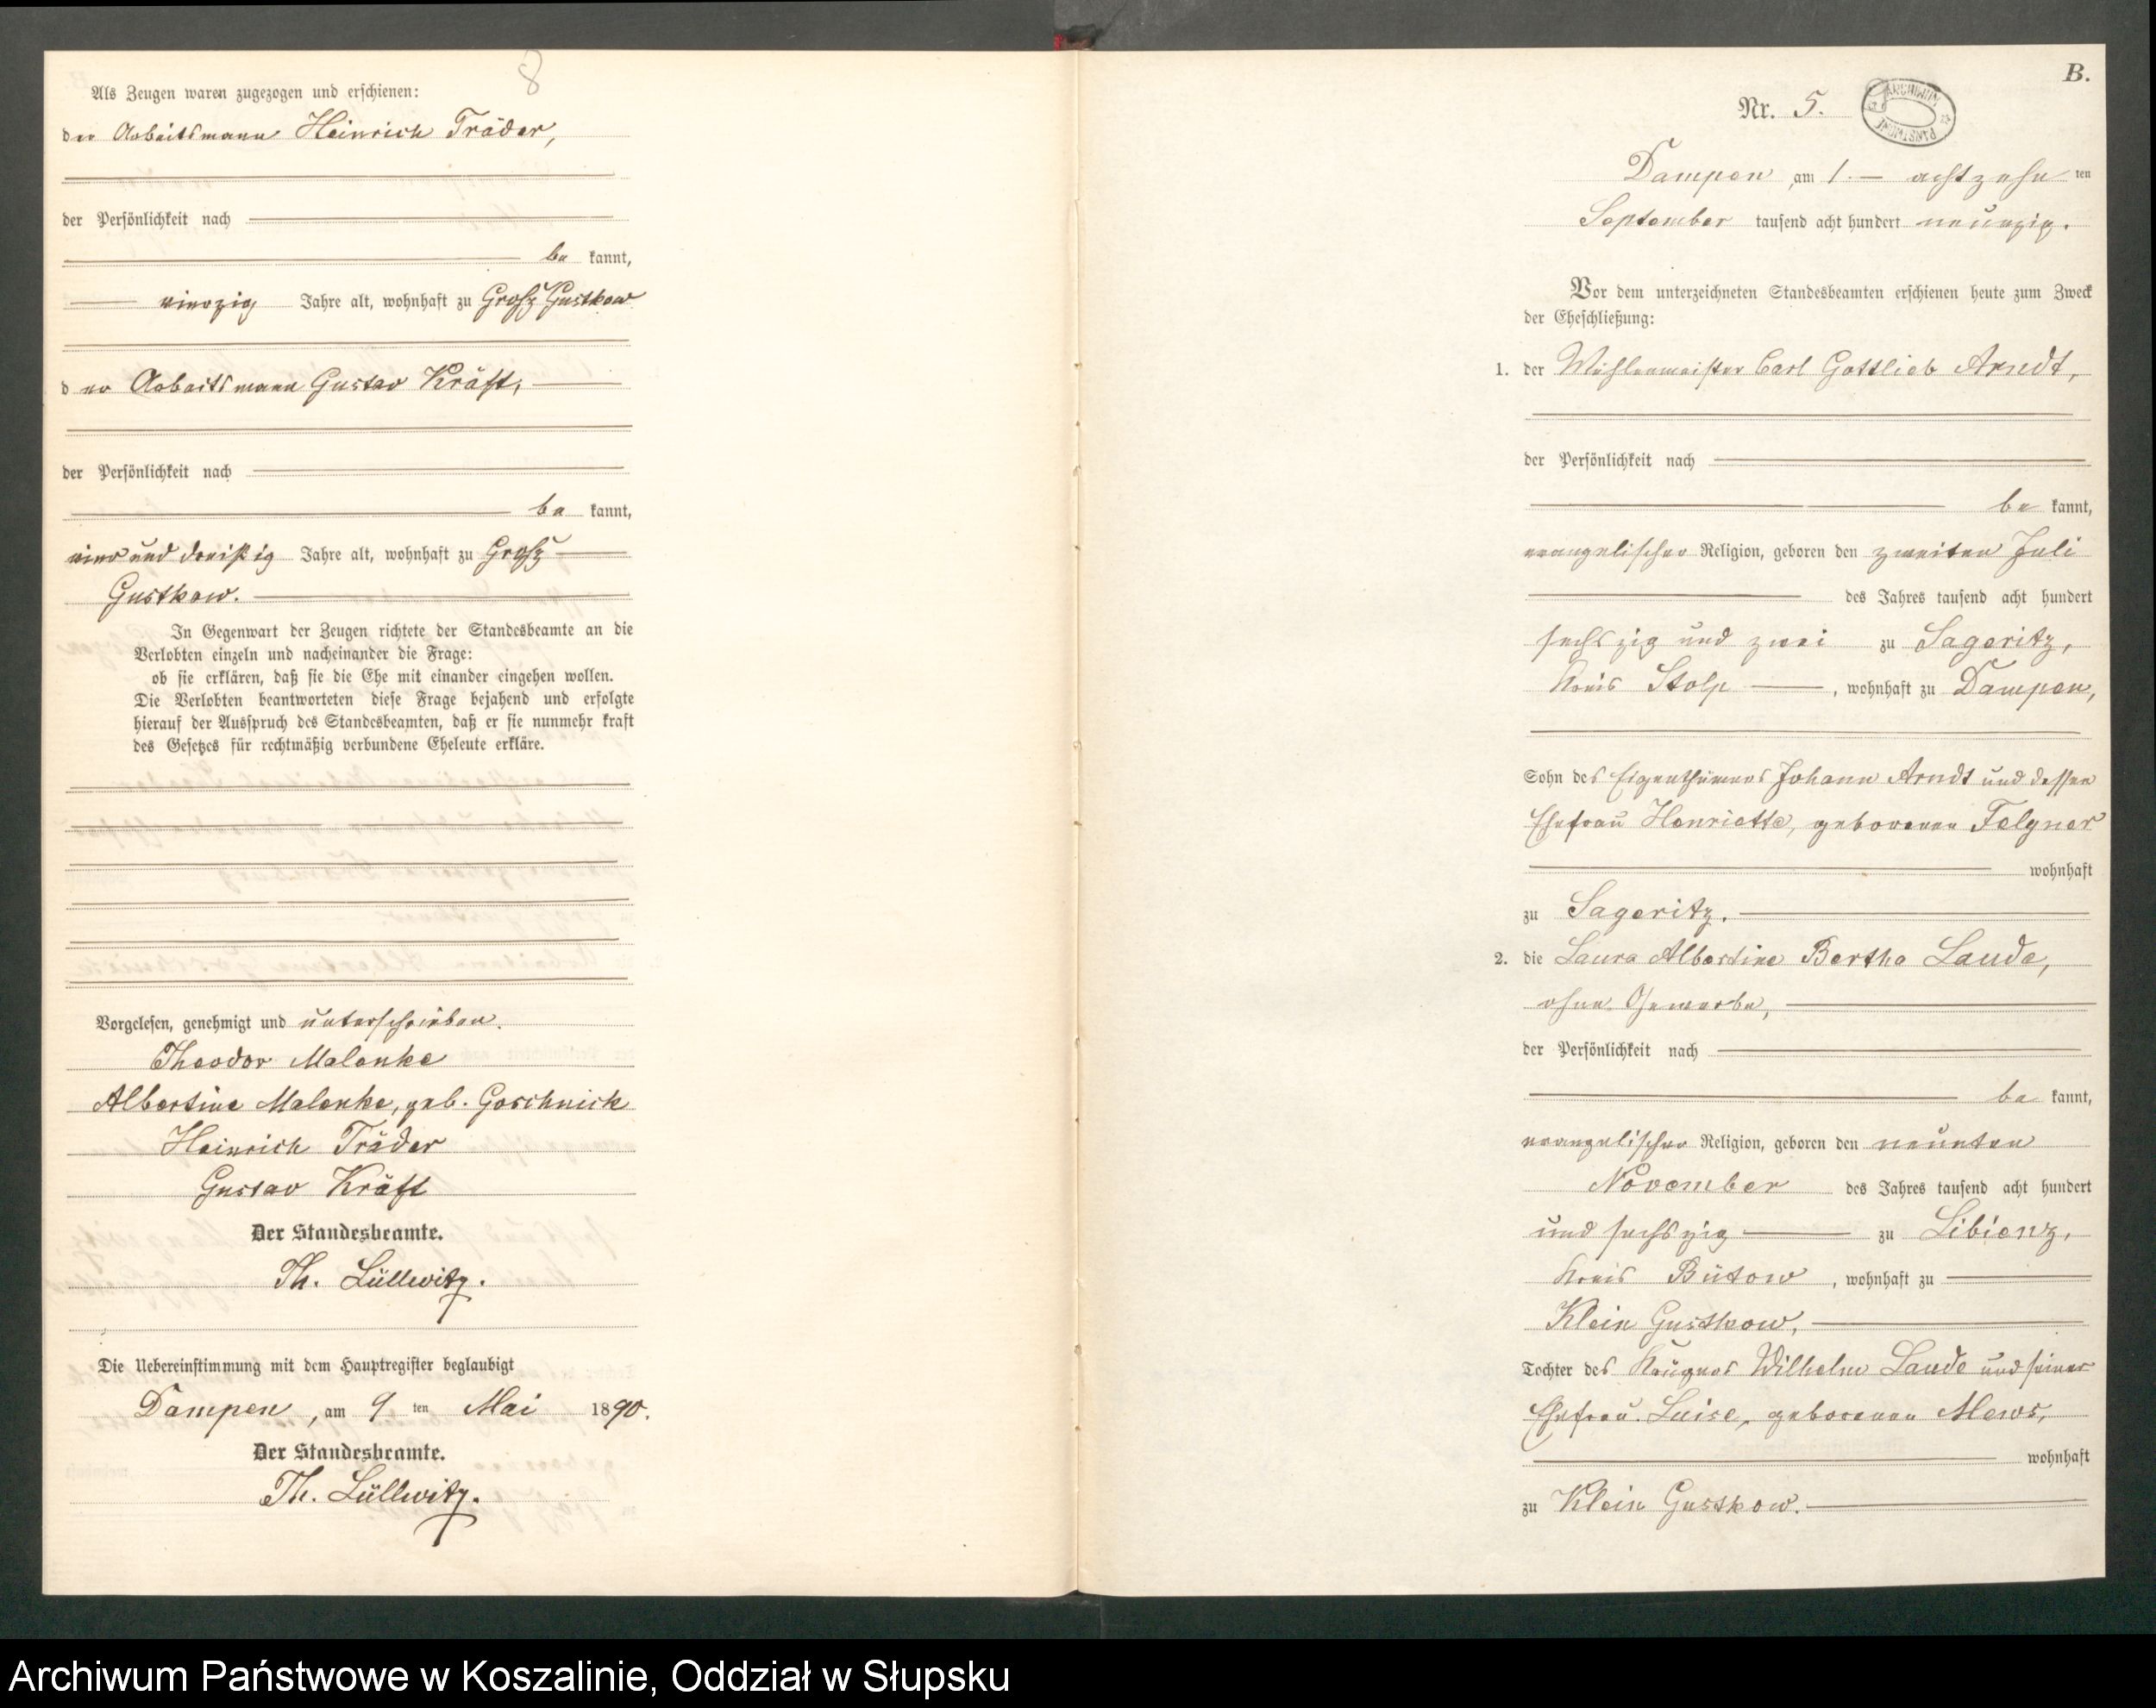 8
Als Zeugen waren zugezogen und erschienen:
der Arbeitsmann Heinrich Träder,
der Persönlichkeit nach
be kannt,
vierzig Jahre alt, wohnhaft zu Groß Gustkow
der Arbeitsmann Gustav Kräft,
der Persönlichkeit nach
be kannt,
vier und dreißig Jahre alt, wohnhaft zu Groß
Gustkow.
In Gegenwart der Zeugen richtete der Standesbeamte an die
Verlobten einzeln und nacheinander die Frage:
ob sie erklären, daß sie die Ehe mit einander eingehen wollen.
Die Verlobten beantworteten diese Frage bejahend und erfolgte
hierauf der Ausspruch des Standesbeamten, daß er sie nunmehr kraft
des Gesetzes für rechtmäßig verbundene Eheleute erkläre.
Vorgelesen, genehmigt und unterschrieben.
Theodor Malenke
Albertine Malenke, geb. Goschnick
Heinrich Träder
Gustav Kräft
Der Standesbeamte.
Th. Lüllwitz.
Die Uebereinstimmung mit dem Hauptregister beglaubigt
Dampen, am 9 ten Mai 1890.
Der Standesbeamte.
Th. Lüllwitz.
B.
Nr. 5.
ARCHIWUM PAŃSTWOWE
Dampen am 1. — achtzehn ten
September tausend acht hundert neunzig.
Vor dem unterzeichneten Standesbeamten erschienen heute zum Zweck
der Eheschließung:
1. der Mühlenmeister Carl Gottlieb Arndt,
der Persönlichkeit nach
be kannt,
evangelischer Religion, geboren den zweiten Juli
des Jahres tausend acht hundert
sechszig und zwei zu Sageritz,
Kreis Stolp, wohnhaft zu Dampen,
Sohn des Eigenthümers Johann Arndt und dessen
Ehefrau Henriette, geborenen Felgner
wohnhaft
zu Sageritz.
2. die Laura Albertine Bertha Laude,
ohne Gewerbe,
der Persönlichkeit nach
be kannt,
evangelischer Religion, geboren den neunten
November des Jahres tausend acht hundert
und sechszig zu Libienz,
Kreis Bütow, wohnhaft zu
Klein Gustkow,
Tochter des Krügers Wilhelm Laude und seiner
Ehefrau Luise, geborenen Mews,
wohnhaft
zu Klein Gustkow.
Archiwum Państwowe w Koszalinie, Oddział w Słupsku